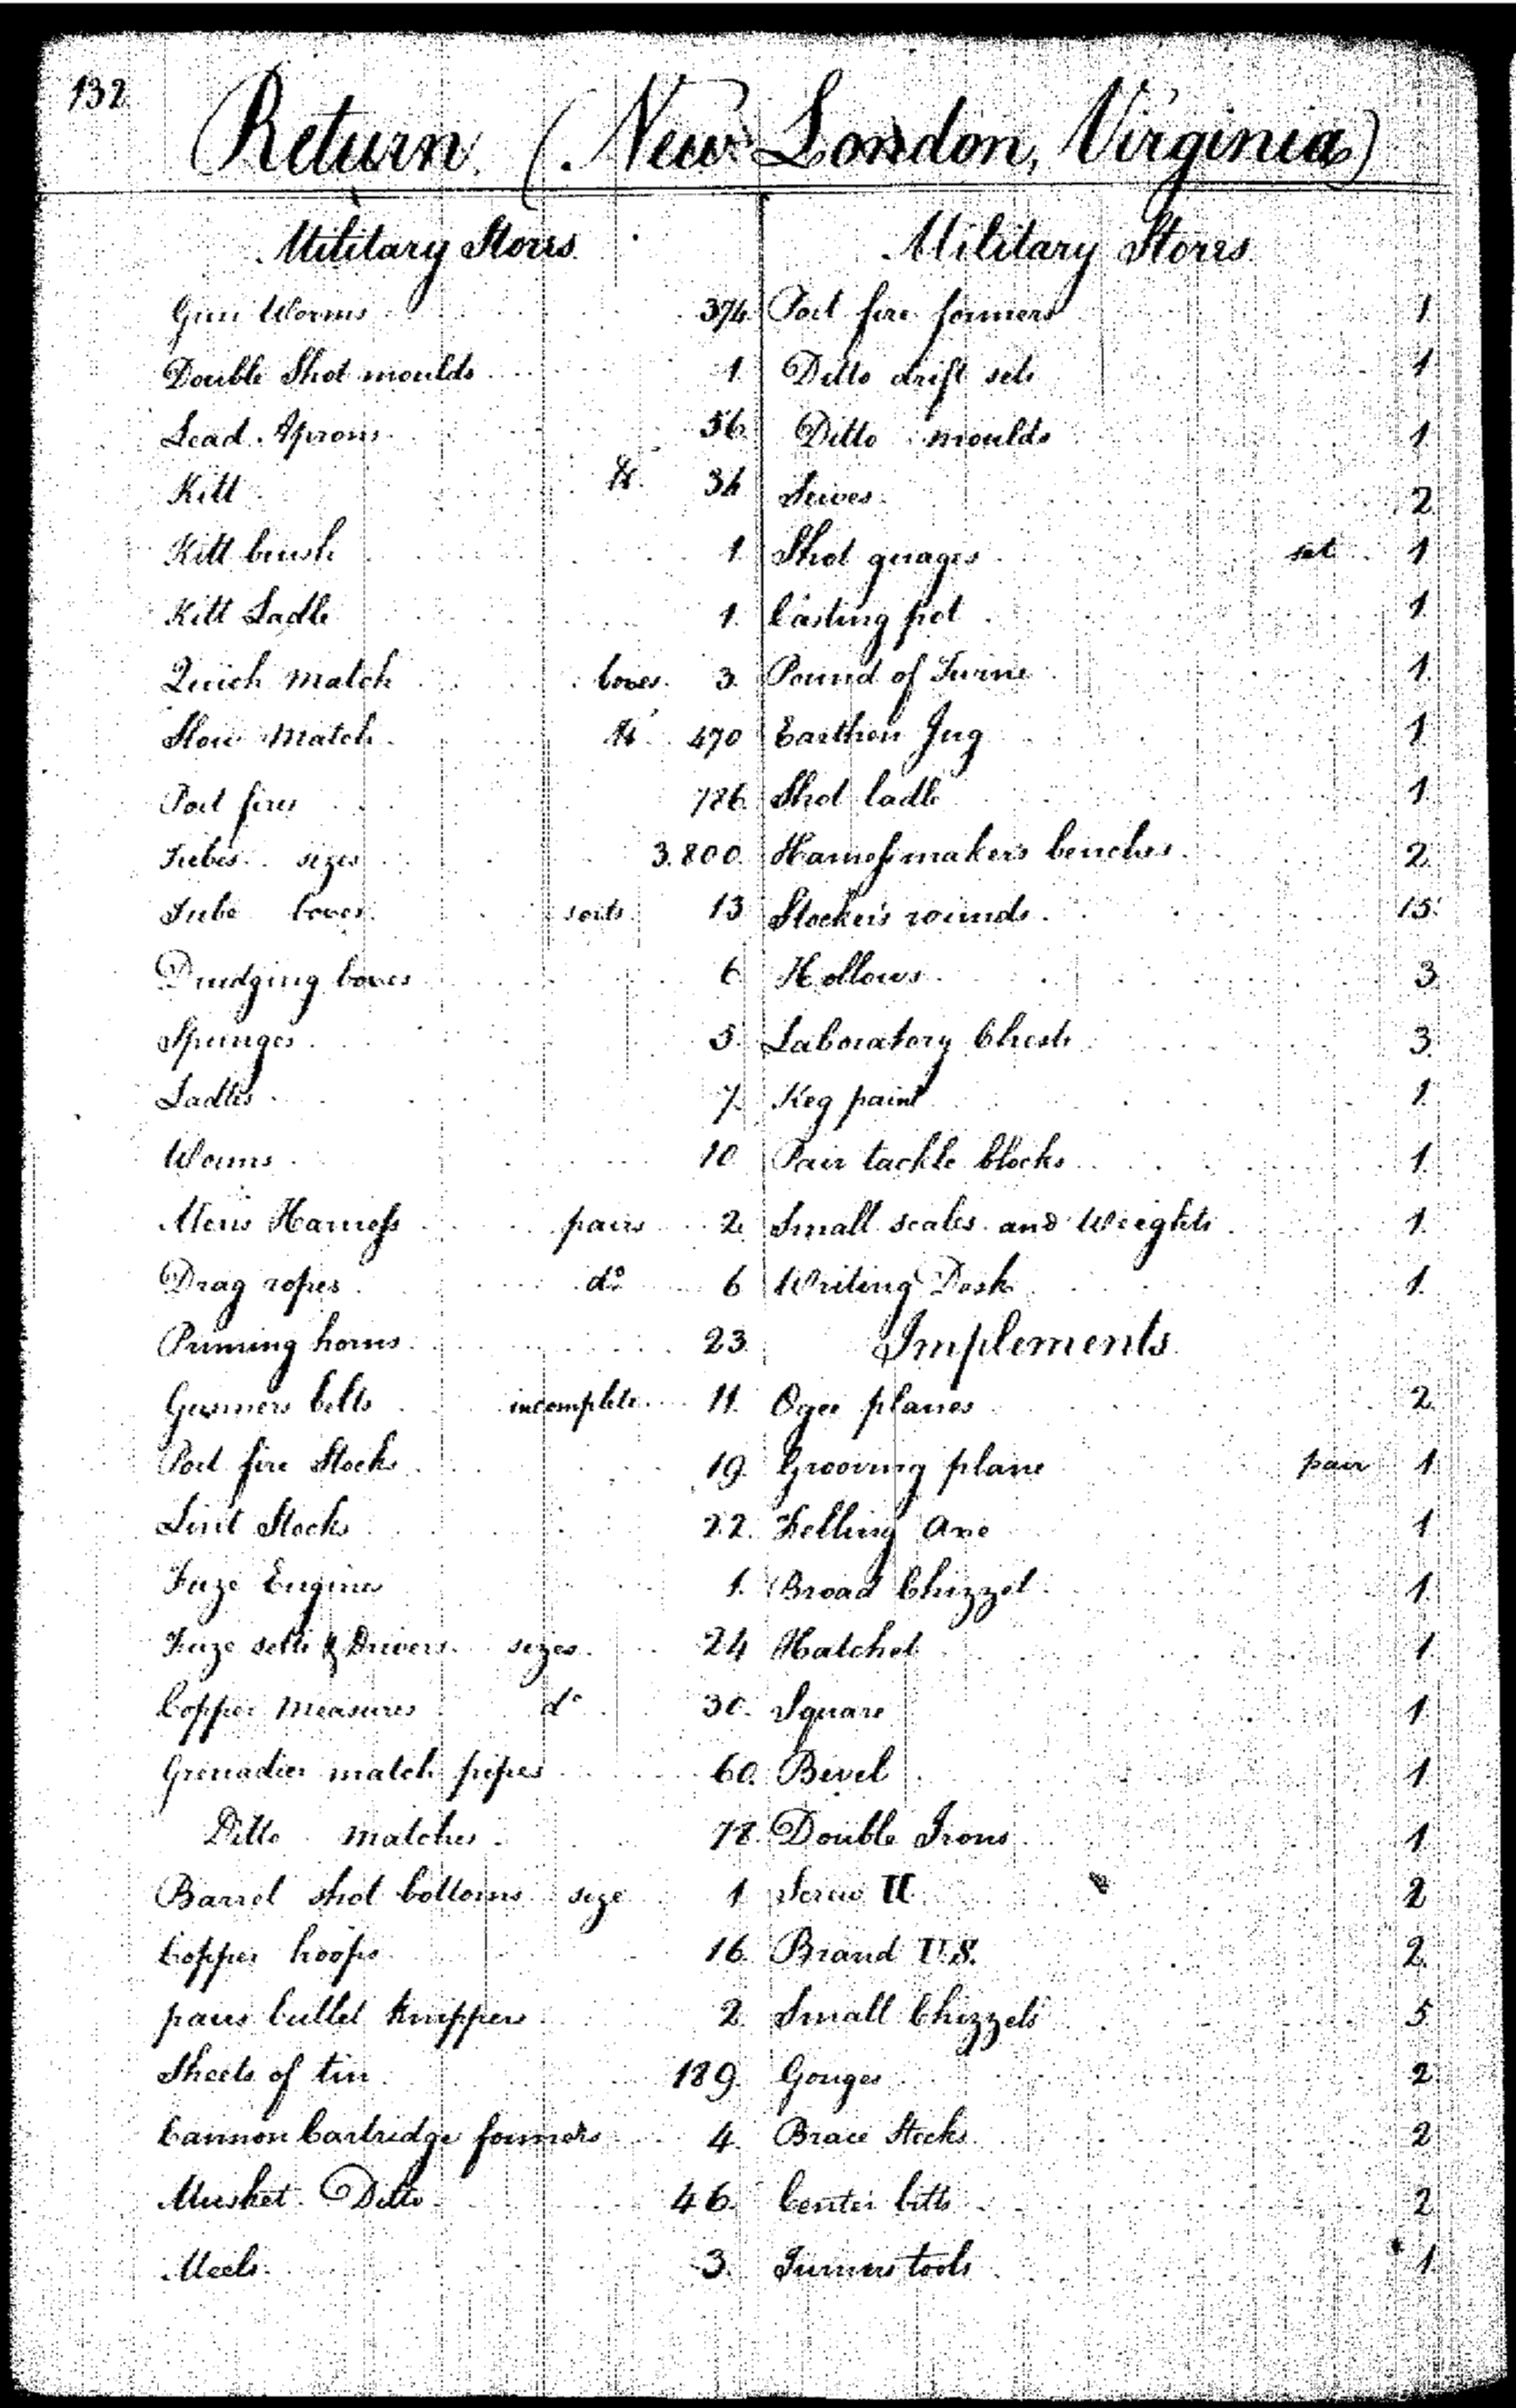 132
Return. (New London, Virginia)
Military Stores.
Gun Worms 374.
Double Shot moulds 1.
Lead Aprons 56.
Kitt ℔. 34
Kitt brush 1.
Kitt Ladle 1.
Quick Match boxes. 3.
Slow Match ℔. 470
Port fires 786.
Tubes sizes 3.800.
Tube boxes. sorts. 13
Drudging boxes 6
Spunges. 5.
Ladles 7.
Worms. 10
Mens Harness pairs 2.
Drag ropes. do. 6
Priming horns. 23.
Gunners belts incomplete. 11.
Port fire Stocks. 19.
Lint Stocks 22.
Fuze Engines 1.
Fuze setts & Drivers sizes. 24
Copper Measures do. 30.
Grenadier match pipes 60.
Ditto matches 78.
Barrel shot bottoms size 1
Copper hoops. 16.
pairs bullet knippers 2.
Sheets of tin. 189.
Cannon Cartridge formers 4.
Musket Ditto 46.
Meels. 3.
Military Stores.
Port fire formers 1.
Ditto drift sets 1
Ditto moulds 1
Seives. 2
Shot guages set 1
Casting pot 1.
Pound of Turne 1.
Earthen Jug 1.
Shot ladle 1.
Harnessmakers benches. 2.
Stocker's rounds. 15.
Hollows. 3
Laboratory Chests 3.
Keg paint 1.
Pair tackle blocks 1.
Small scales and Weights 1.
Writing Desk 1.
Implements.
Ogee planes 2.
Grooving plane pair 1.
Felling Axe 1.
Broad Chizzel. 1.
Hatchet 1.
Square 1.
Bevel 1.
Double Irons 1.
Screw 2
Brand U.S. 2.
Small Chizzels 5
Gouges 2.
Brace Stocks. 2
Center bitts 2
Turners tools 1.